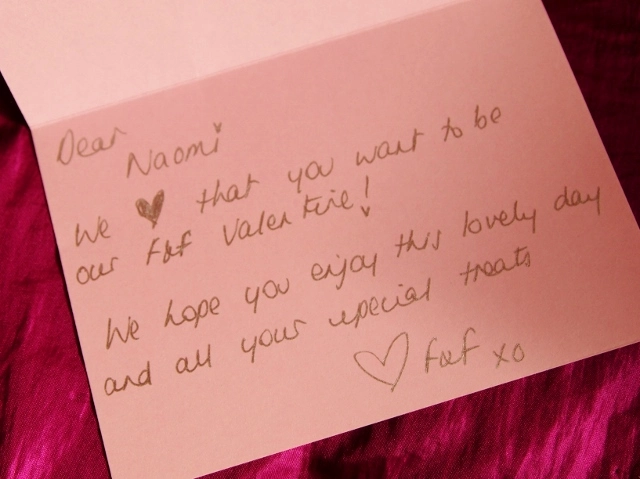 Dear
Naomi
We ♥ that you want to be
our F&F Valentine!
We hope you enjoy this lovely day
and all your special treats
♡ F&F xo